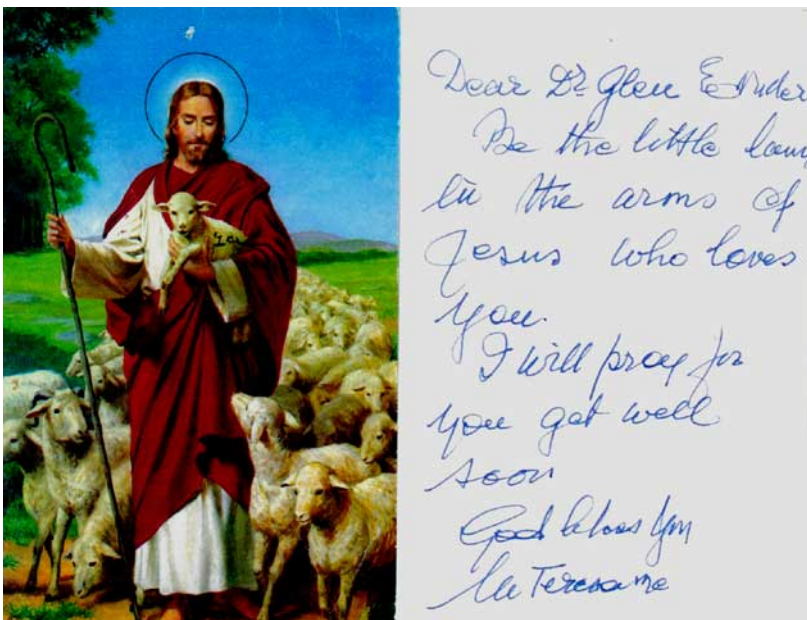 Dear Dr Glen
Be the little lam
in the arms of
Jesus who loves
you.
I will pray for
you get well
soon
God bless you
M Teresa mc